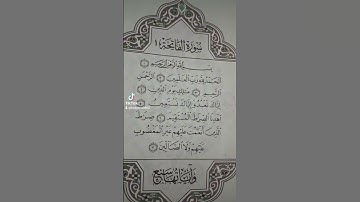 سُورَةُ الْفَاتِحَةِ ١
بِسْمِ اللَّهِ الرَّحْمَٰنِ الرَّحِيمِ ۝١
الْحَمْدُ لِلَّهِ رَبِّ الْعَالَمِينَ ۝٢ الرَّحْمَٰنِ
الرَّحِيمِ ۝٣ مَالِكِ يَوْمِ الدِّينِ ۝٤
إِيَّاكَ نَعْبُدُ وَإِيَّاكَ نَسْتَعِينُ ۝٥
اهْدِنَا الصِّرَاطَ الْمُسْتَقِيمَ ۝٦ صِرَاطَ
الَّذِينَ أَنْعَمْتَ عَلَيْهِمْ غَيْرِ الْمَغْضُوبِ
عَلَيْهِمْ وَلَا الضَّالِّينَ ۝٧
وَآيَاتُهَا سَبْعٌ
TikTok